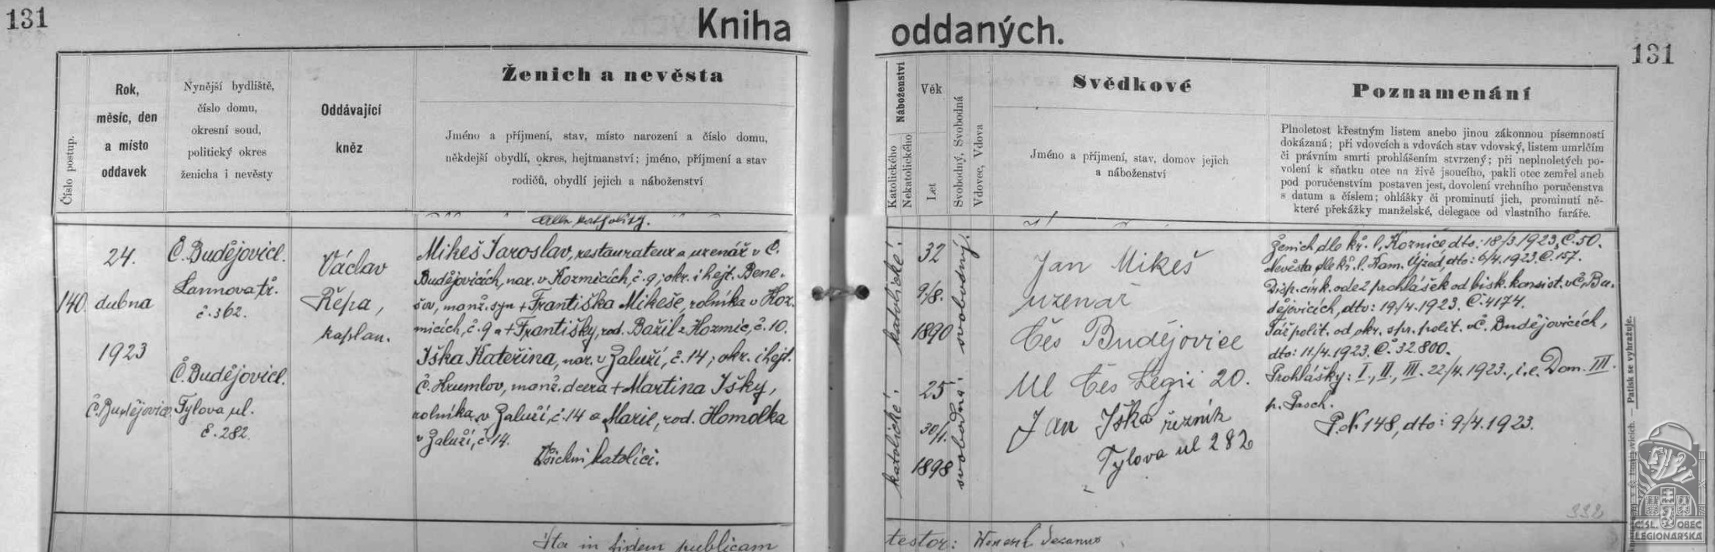 131
Kniha oddaných.
131
Číslo postup.
Rok,
měsíc, den
a místo
oddavek
Nynější bydliště,
číslo domu,
okresní soud,
politický okres
ženicha i nevěsty
Oddávající
kněz
Ženich a nevěsta
Jméno a příjmení, stav, místo narození a číslo domu,
někdejší obydlí, okres, hejtmanství; jméno, příjmení a stav
rodičů, obydlí jejich a náboženství
Náboženství
Katolického
Nekatolického
Věk
Let
Svobodný, Svobodná
Vdovec, Vdova
Svědkové
Jméno a příjmení, stav, domov jejich
a náboženství
Poznamenání
Plnoletost křestným listem anebo jinou zákonnou písemností
dokázaná; při vdovcích a vdovách stav vdovský, listem umrlčím
či právním smrti prohlášením stvrzený; při neplnoletých po-
volení k sňatku otce na živě jsoucího, pakli otec zemřel aneb
pod poručenstvím postaven jest, dovolení vrchního poručenstva
s datum a číslem; ohlášky či prominutí jich, prominutí ně-
které překážky manželské, delegace od vlastního faráře.
140.
24.
dubna
1923
Č. Budějovice
Č. Budějovice.
Lannova tř.
č. 362.
Č. Budějovice.
Tylova ul.
č. 282.
Václav
Řepa,
kaplan.
Mikeš Jaroslav, restaurateur a uzenář v Č.
Budějovicích, nar. v Kozmicích, č. 9; okr. i hejt. Bene-
šov, manž. syn + Františka Mikeše, rolníka v Koz-
micích, č. 9 a + Františky, rod. Bažil z Kozmic, č. 10.
Iška Kateřina, nar. v Zaluží, č. 14; okr. i hejt.
Č. Krumlov, manž. dcera + Martina Išky,
rolníka v Zaluží, č. 14 a Marie, rod. Homolka
v Zaluží, č. 14.
Všichni katolíci.
katolické!
katolické!
32
9/8.
1890
25
30/1.
1898
svobodný!
svobodná!
Jan Mikeš
uzenář
Čes Budějovice
Ul Čes Legii 20.
Jan Iška řezník
Tylova ul 282
Ženich dle kř. l. Kozmice dto: 18/3 1923, Č. 50.
Nevěsta dle kř. l. Kam. Újezd, dto: 6/4 1923, Č. 157.
Disp. círk. od 2 prohlášek od bisk. konsist. v Č. Bu-
dějovicích, dto: 19/4 1923. Č. 4174.
polit. od okr. spr. polit. v Č. Budějovicích,
dto: 11/4 1923. Č. 32800.
Prohlášky: I., II., III. 22/4 1923., i.e. Dom. III.
p. Pasch.
P. N. 148, dto: 9/4 1923.
Ita in fidem publicam
testor:
Patisk se vyhražuje.
ČSL. OBEC
LEGIONÁŘSKÁ